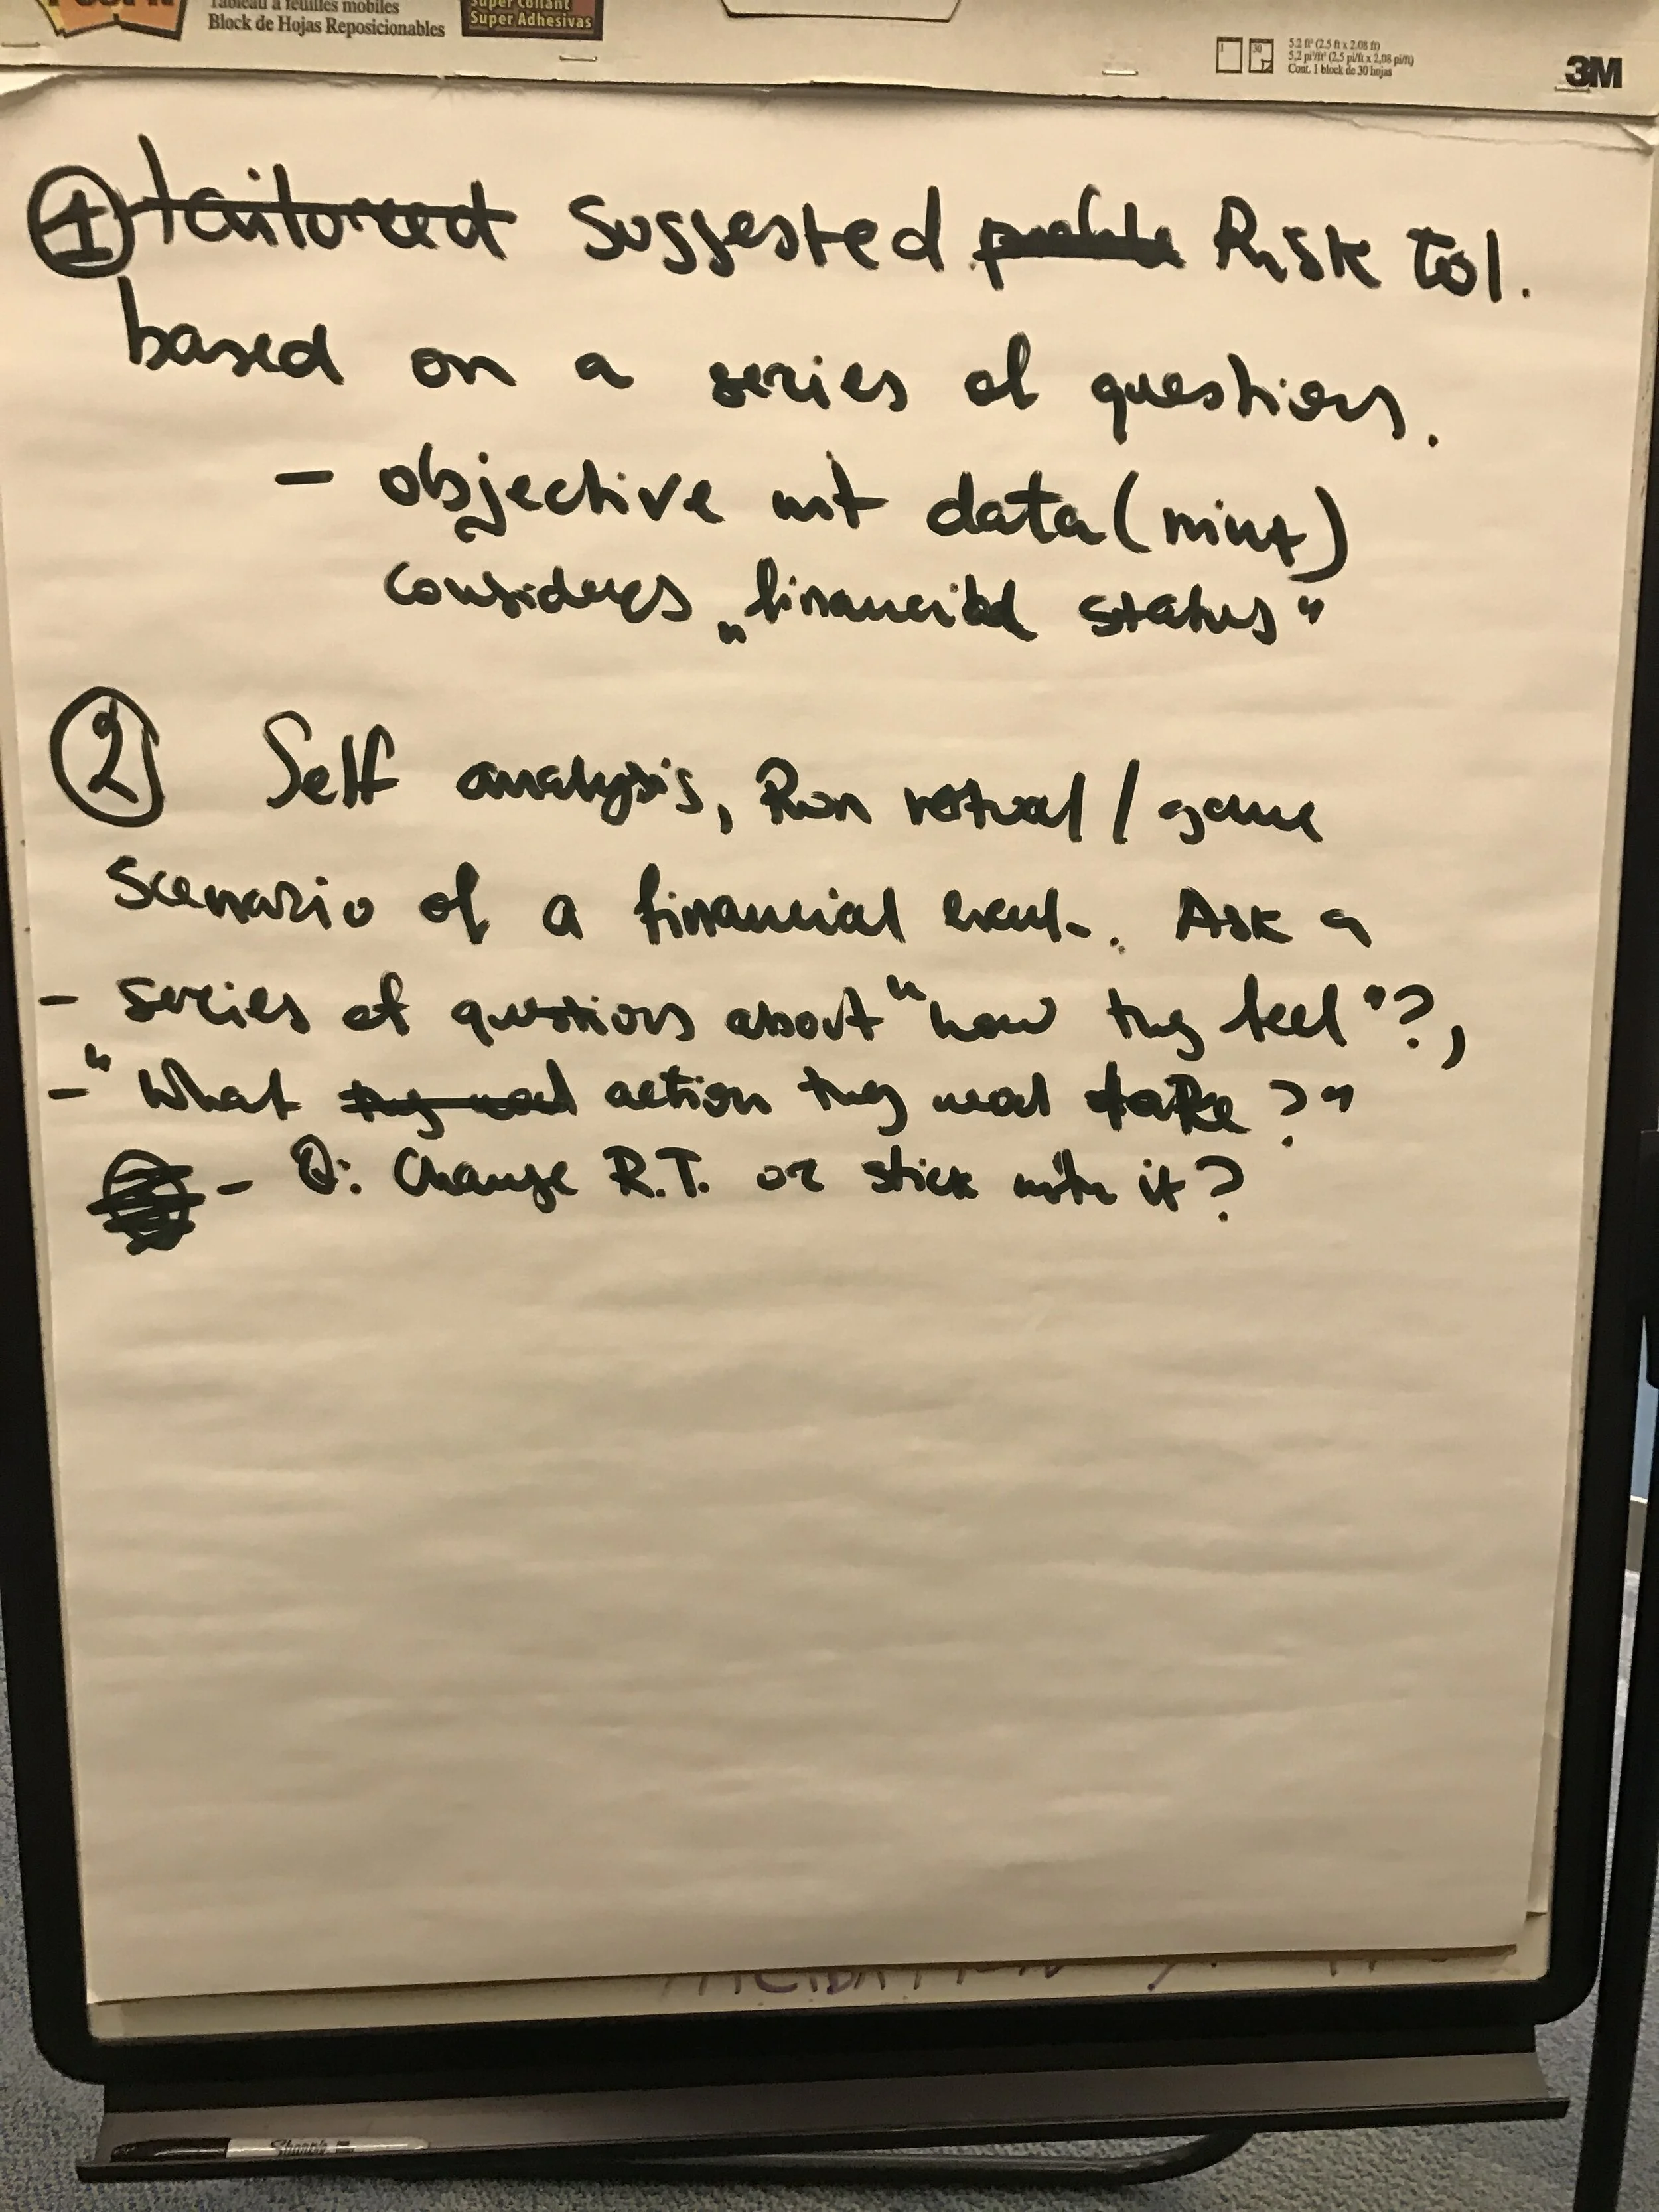 Tableau à feuilles mobiles
Block de Hojas Reposicionables
Super Collant
Super Adhesivas
5.2 ft² (2.5 ft x 2.08 ft)
5,2 pi²/ft² (2,5 pi/ft x 2,08 pi/ft)
Cont. 1 block de 30 hojas
3M
1 tailored Suggested profile Risk tol.
based on a series of questions.
- objective data (mint)
considers „financial status"
2 Self analysis, Run / game
scenario of a financial event. Ask a
- series of questions about "how they feel"?,
- "What they action they take?"
- Q: Change R.T. or stick with it?
Sharpie